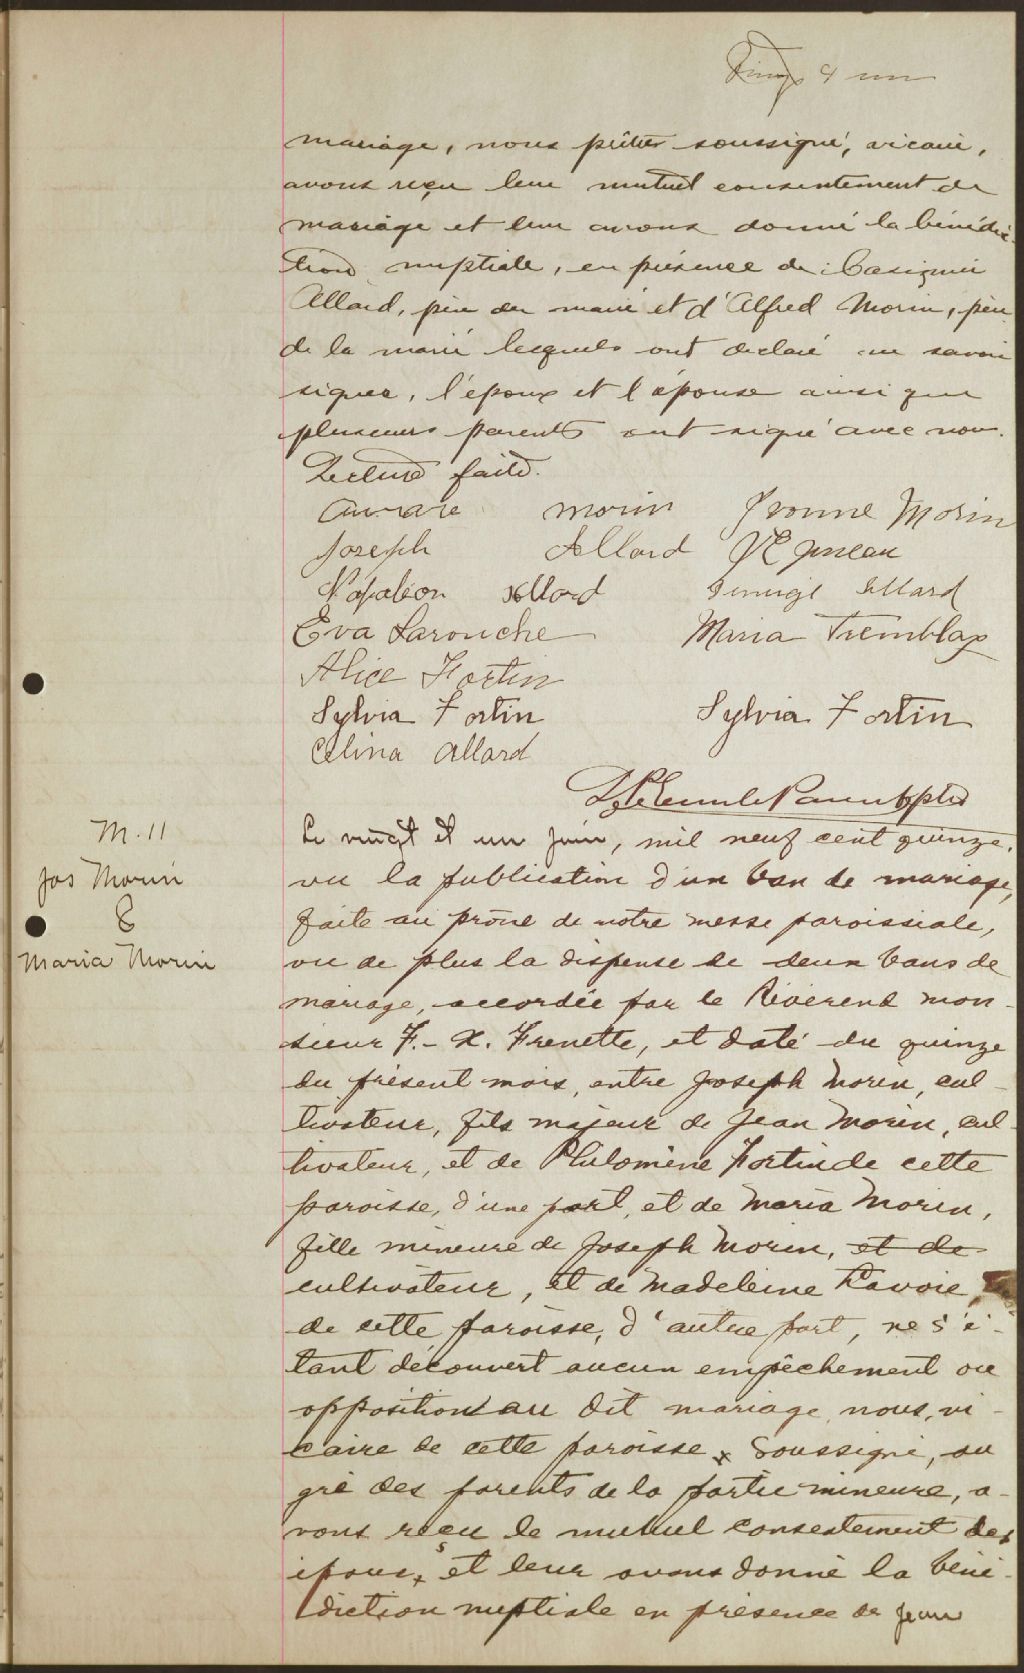 Vingt & un
mariage, nous prêtre soussigné, vicaire,
avons reçu leur mutuel consentement de
mariage et leur avons donné la bénédic-
tion nuptiale, en présence de Casimir
Allard, père du marié et d'Alfred Morin, père
de la marié lesquels ont déclaré ne savoir
signer, l'époux et l'épouse ainsi que
plusieurs parents ont signé avec nous.
Lecture faite.
Aurore Morin Yvonne Morin
Joseph Allard
Napoléon Allard Allard
Eva Larouche Maria Tremblay
Alice Fortin
Sylvia Fortin Sylvia Fortin
Célina Allard
M. 11
Jos Morin
&
Maria Morin
Le vingt et un juin, mil neuf cent quinze,
vu la publication d'un ban de mariage,
faite au prône de notre messe paroissiale,
vu de plus la dispense de deux bans de
mariage, accordée par le Révérend mon-
sieur F.-X. Frenette, et daté du quinze
du présent mois, entre Joseph Morin, cul-
tivateur, fils majeur de Jean Morin, cul-
tivateur, et de Philomène Fortin de cette
paroisse, d'une part, et de Maria Morin,
fille mineure de Joseph Morin, et de
cultivateur, et de Madeleine Lavoie
de cette paroisse, d'autre part, ne s'é-
tant découvert aucun empêchement ou
opposition au dit mariage, nous, vi-
caire de cette paroisse x soussigné, au
gré des parents de la partie mineure, a-
vons reçu le mutuel consentement des
époux, et leur avons donné la béné-
diction nuptiale en présence de Jean